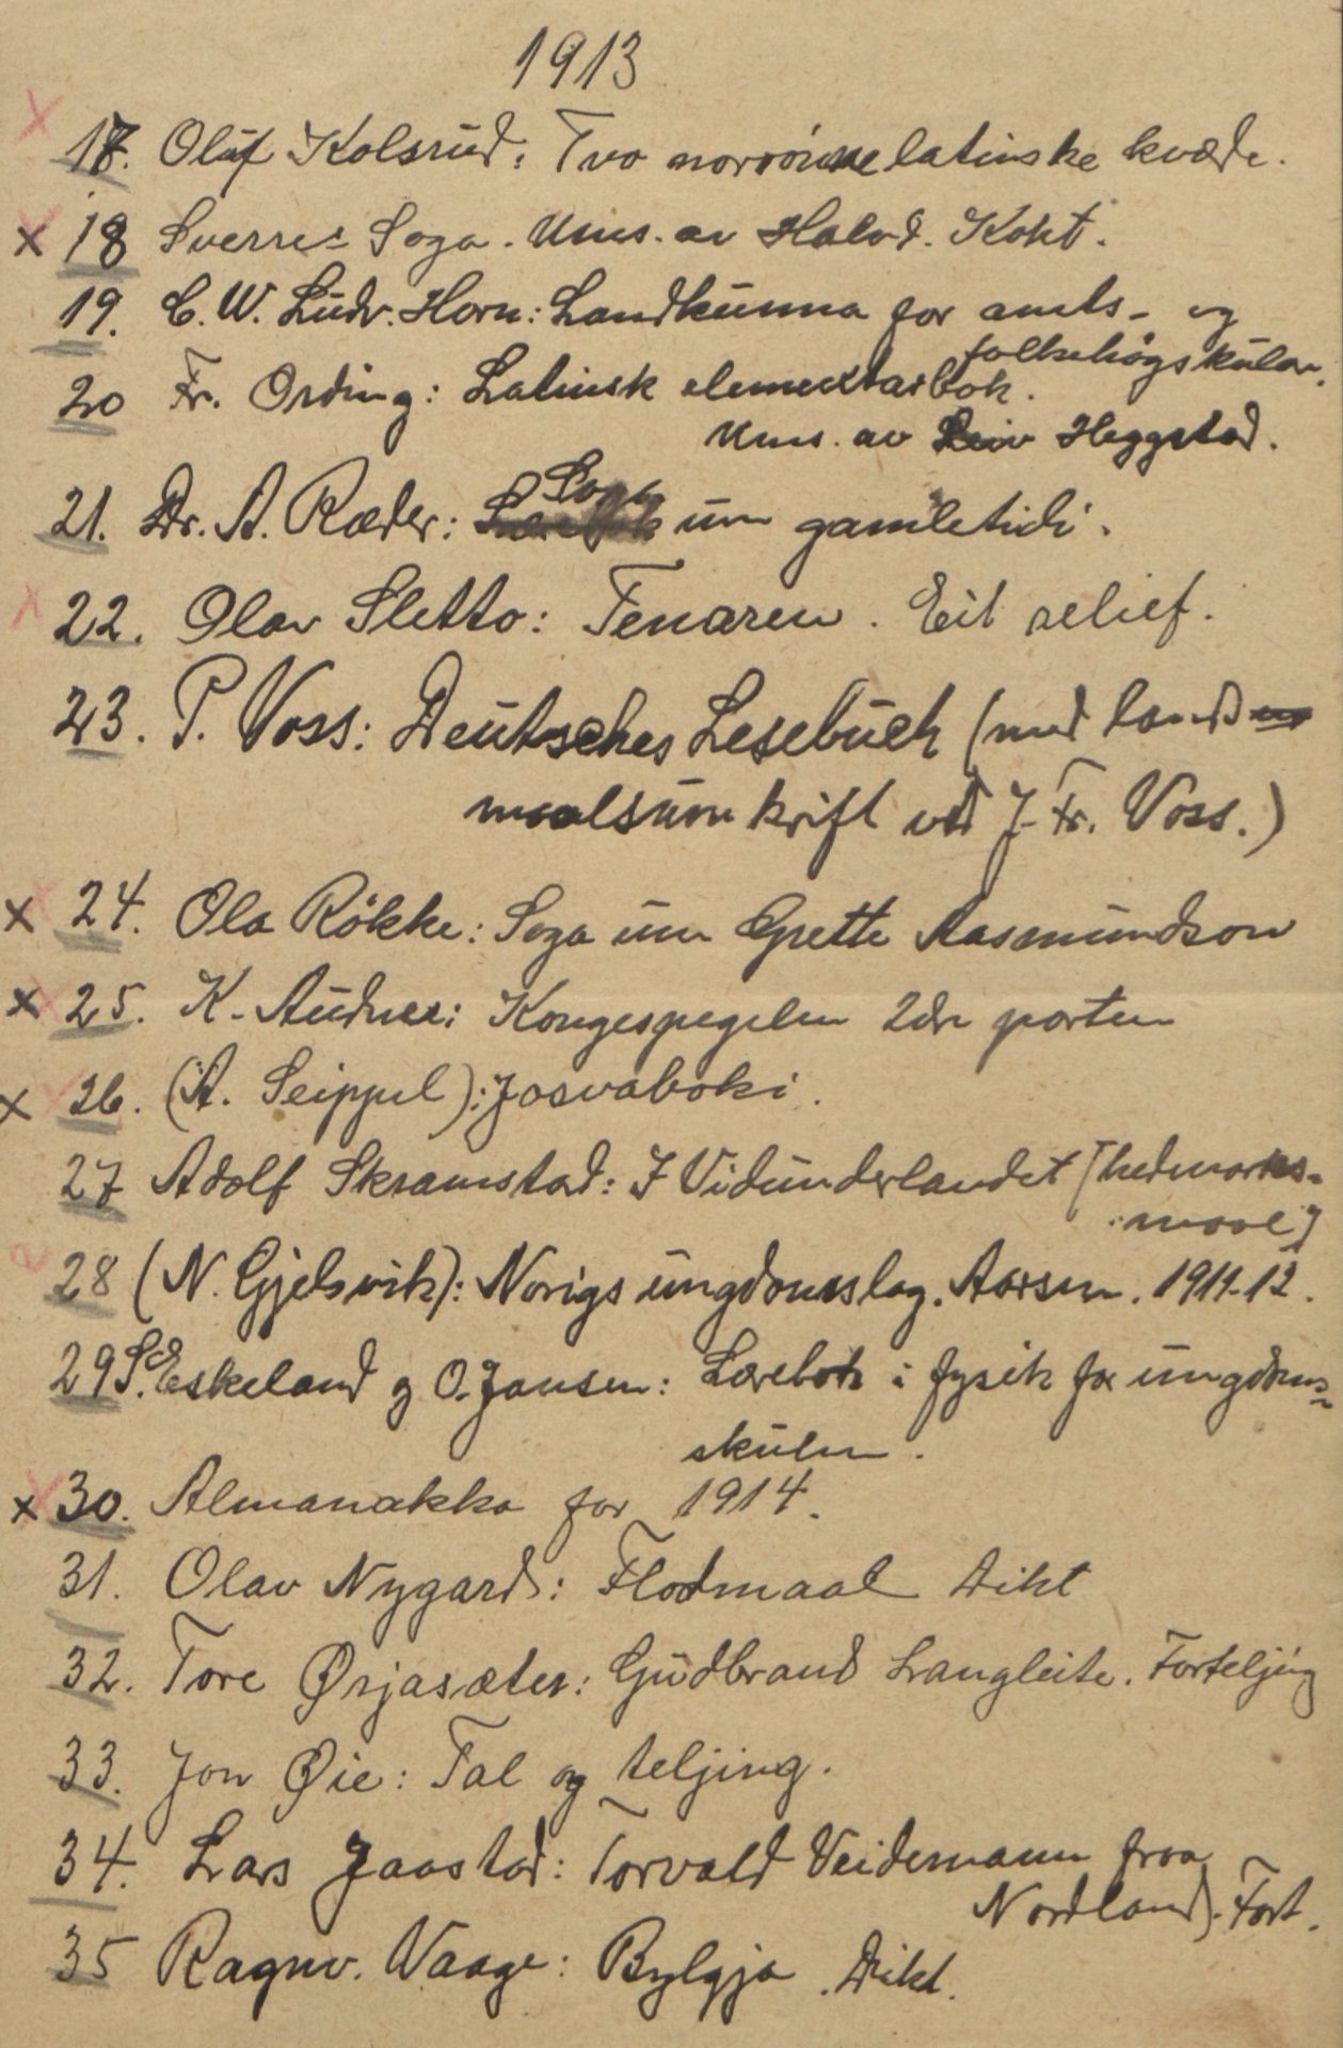 1913
17. Oluf Kolsrud: Tvo norrøne latinske kvæde.
x 18 Sverres Soga. Ums. av Halvd. Koht.
19. C. W. Ludv. Horn: Landkunna for amts- og
folkehøgskular.
20 Fr. Ording: Latinsk elementarbok.
Ums. av Leiv Heggstad.
21. Dr. A. Ræder: Soga um gamletidi.
22. Olav Sletto: Tenaren. Eit relief.
23. P. Voss: Deutsches Lesebuch (med lands
maalsumskrift ved J. Fr. Voss.)
x 24. Ola Rökke: Soga um Grette Aasmundson
x 25. K. Audne: Kongespegelen 2dre parten
x 26. (A. Seippel): Josvaboki.
27 Adolf Skramstad: I Vidunderlandet [hedmarks-
maal]
28 (N. Gjelsvik): Norigs ungdomslag. Aarsm. 1911-12.
29 S. Eskeland og O. Jansen: Lærebok i fysik for ungdoms-
skulen.
x 30. Almanakka for 1914.
31. Olav Nygard: Flodmaal Dikt
32. Tore Ørjasæter: Gudbrand Langleite. Forteljing
33. Jon Øie: Tal og teljing.
34. Lars Jaastad: Torvald Veidemann fraa
Nordland. Fort.
35 Ragnv. Vaage: Bylgja. Dikt.